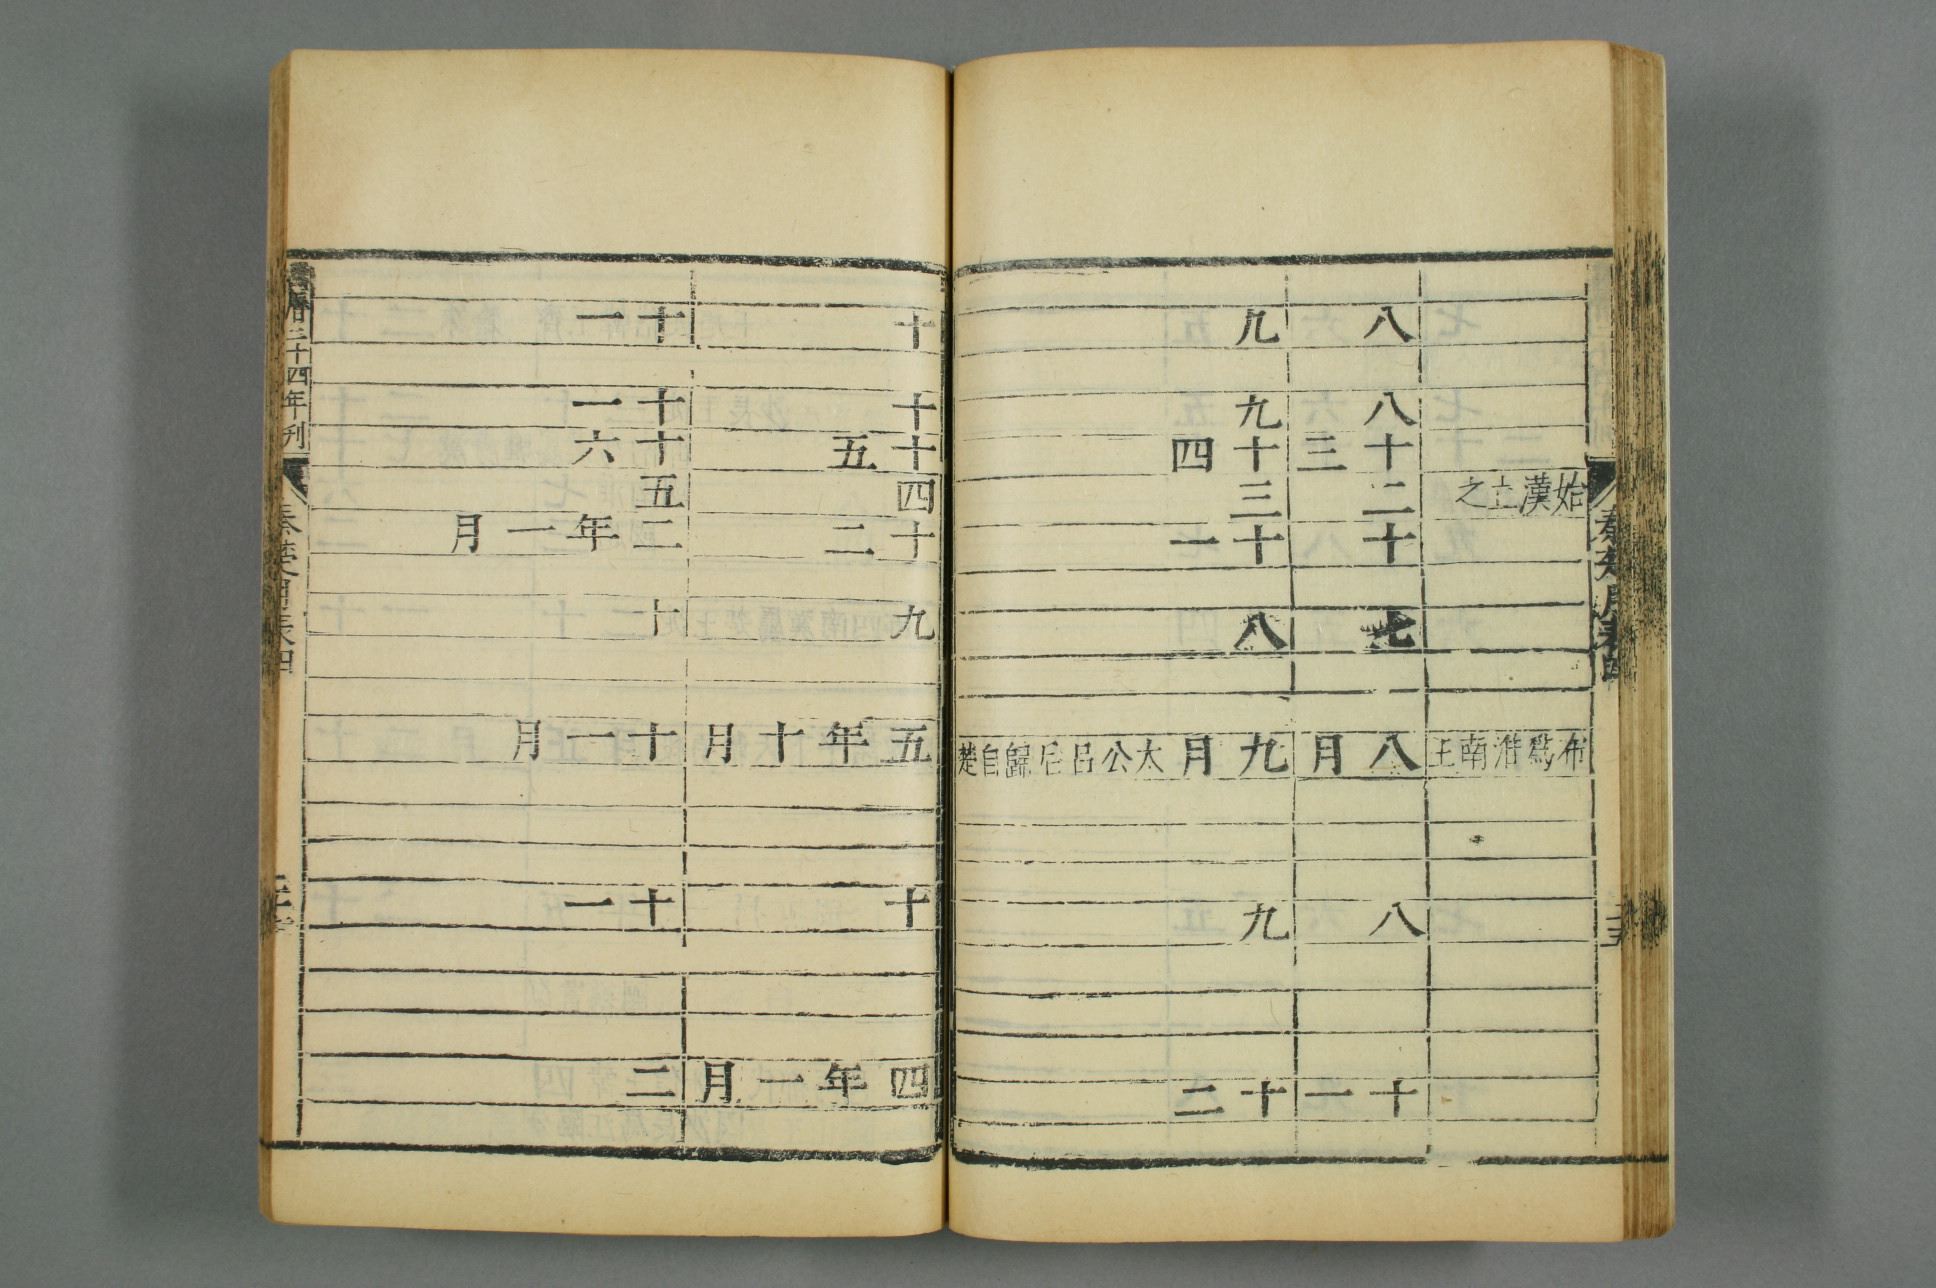 秦楚月表四
始漢立之
布爲淮南王
八
八
十三
二
十
七
八月
八
十一
九
九
十四
三
十一
八
九月太公呂后歸自楚
九
十二
十
十
十五
四
十二
九
五年十月
十
四年一月
十一
十一
十六
五
二年一月
十
十一月
十一
二
曆二十四年刊
秦楚月表四